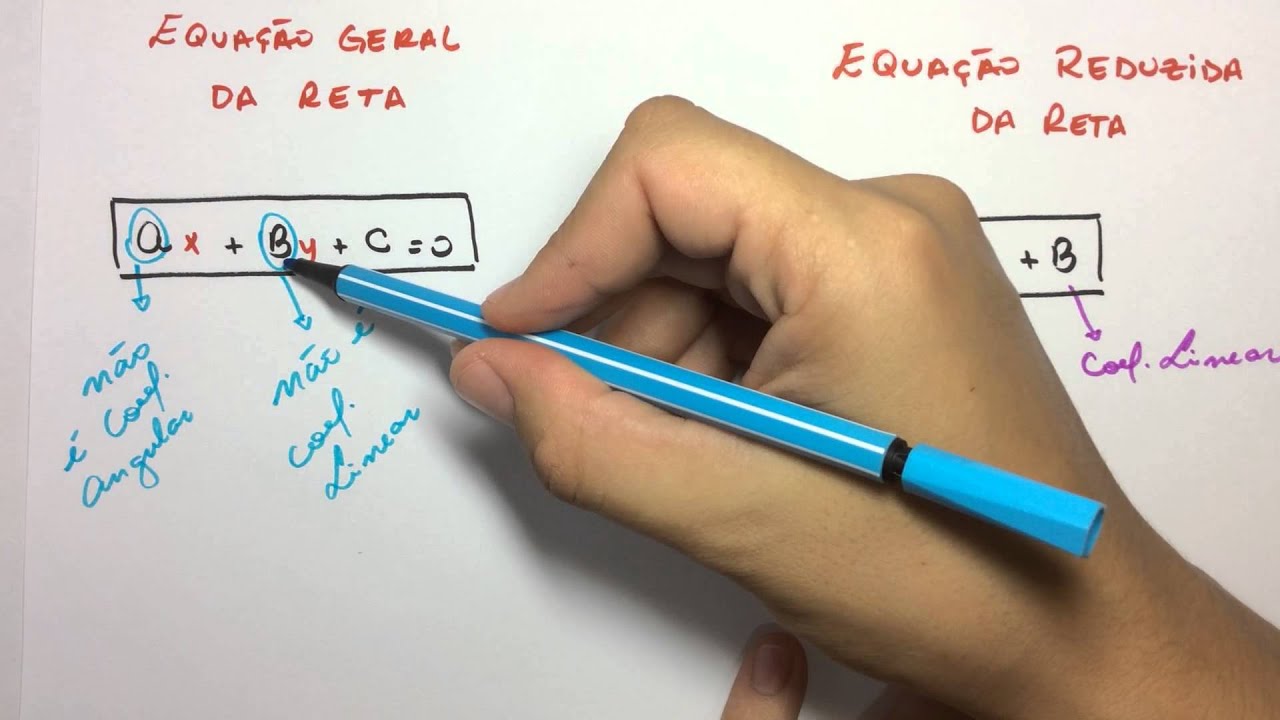 EQUAÇÃO GERAL
DA RETA
ax + By + C = 0
não
é Coef.
angular
não é
coef.
Linear
EQUAÇÃO REDUZIDA
DA RETA
+ B
Coef. Linear